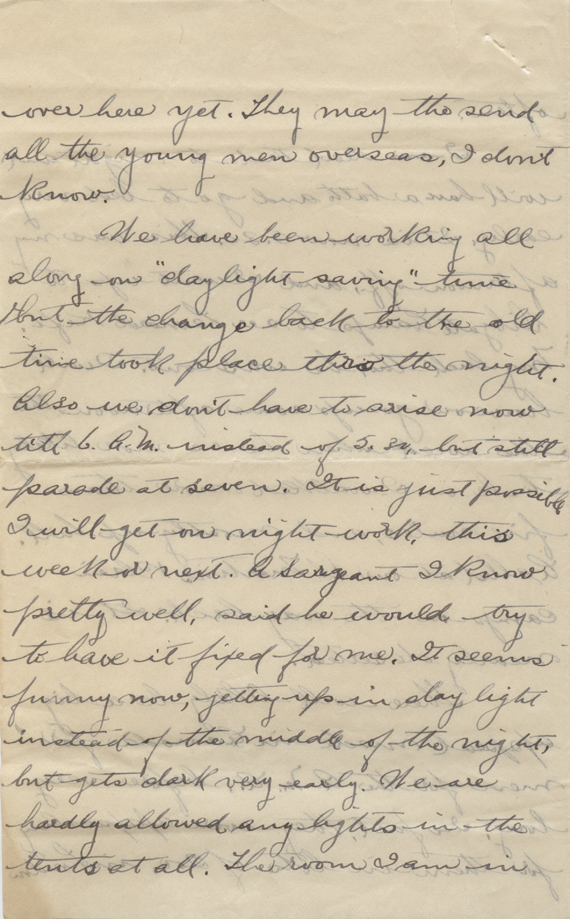 over here yet. They may tho send
all the young men overseas, I don't
know.
We have been working all
along on "daylight saving" time
but the change back to the old
time took place thro the night.
Also we don't have to arise now
till 6. A.M. instead of 5.30, but still
parade at seven. It is just possible
I will get on night work, this
week or next. A sargeant I know
pretty well, said he would try
to have it fixed for me. It seems
funny now, getting up in day light
instead of the middle of the night,
but gets dark very early. We are
hardly allowed any lights in the
tents at all. The room I am in